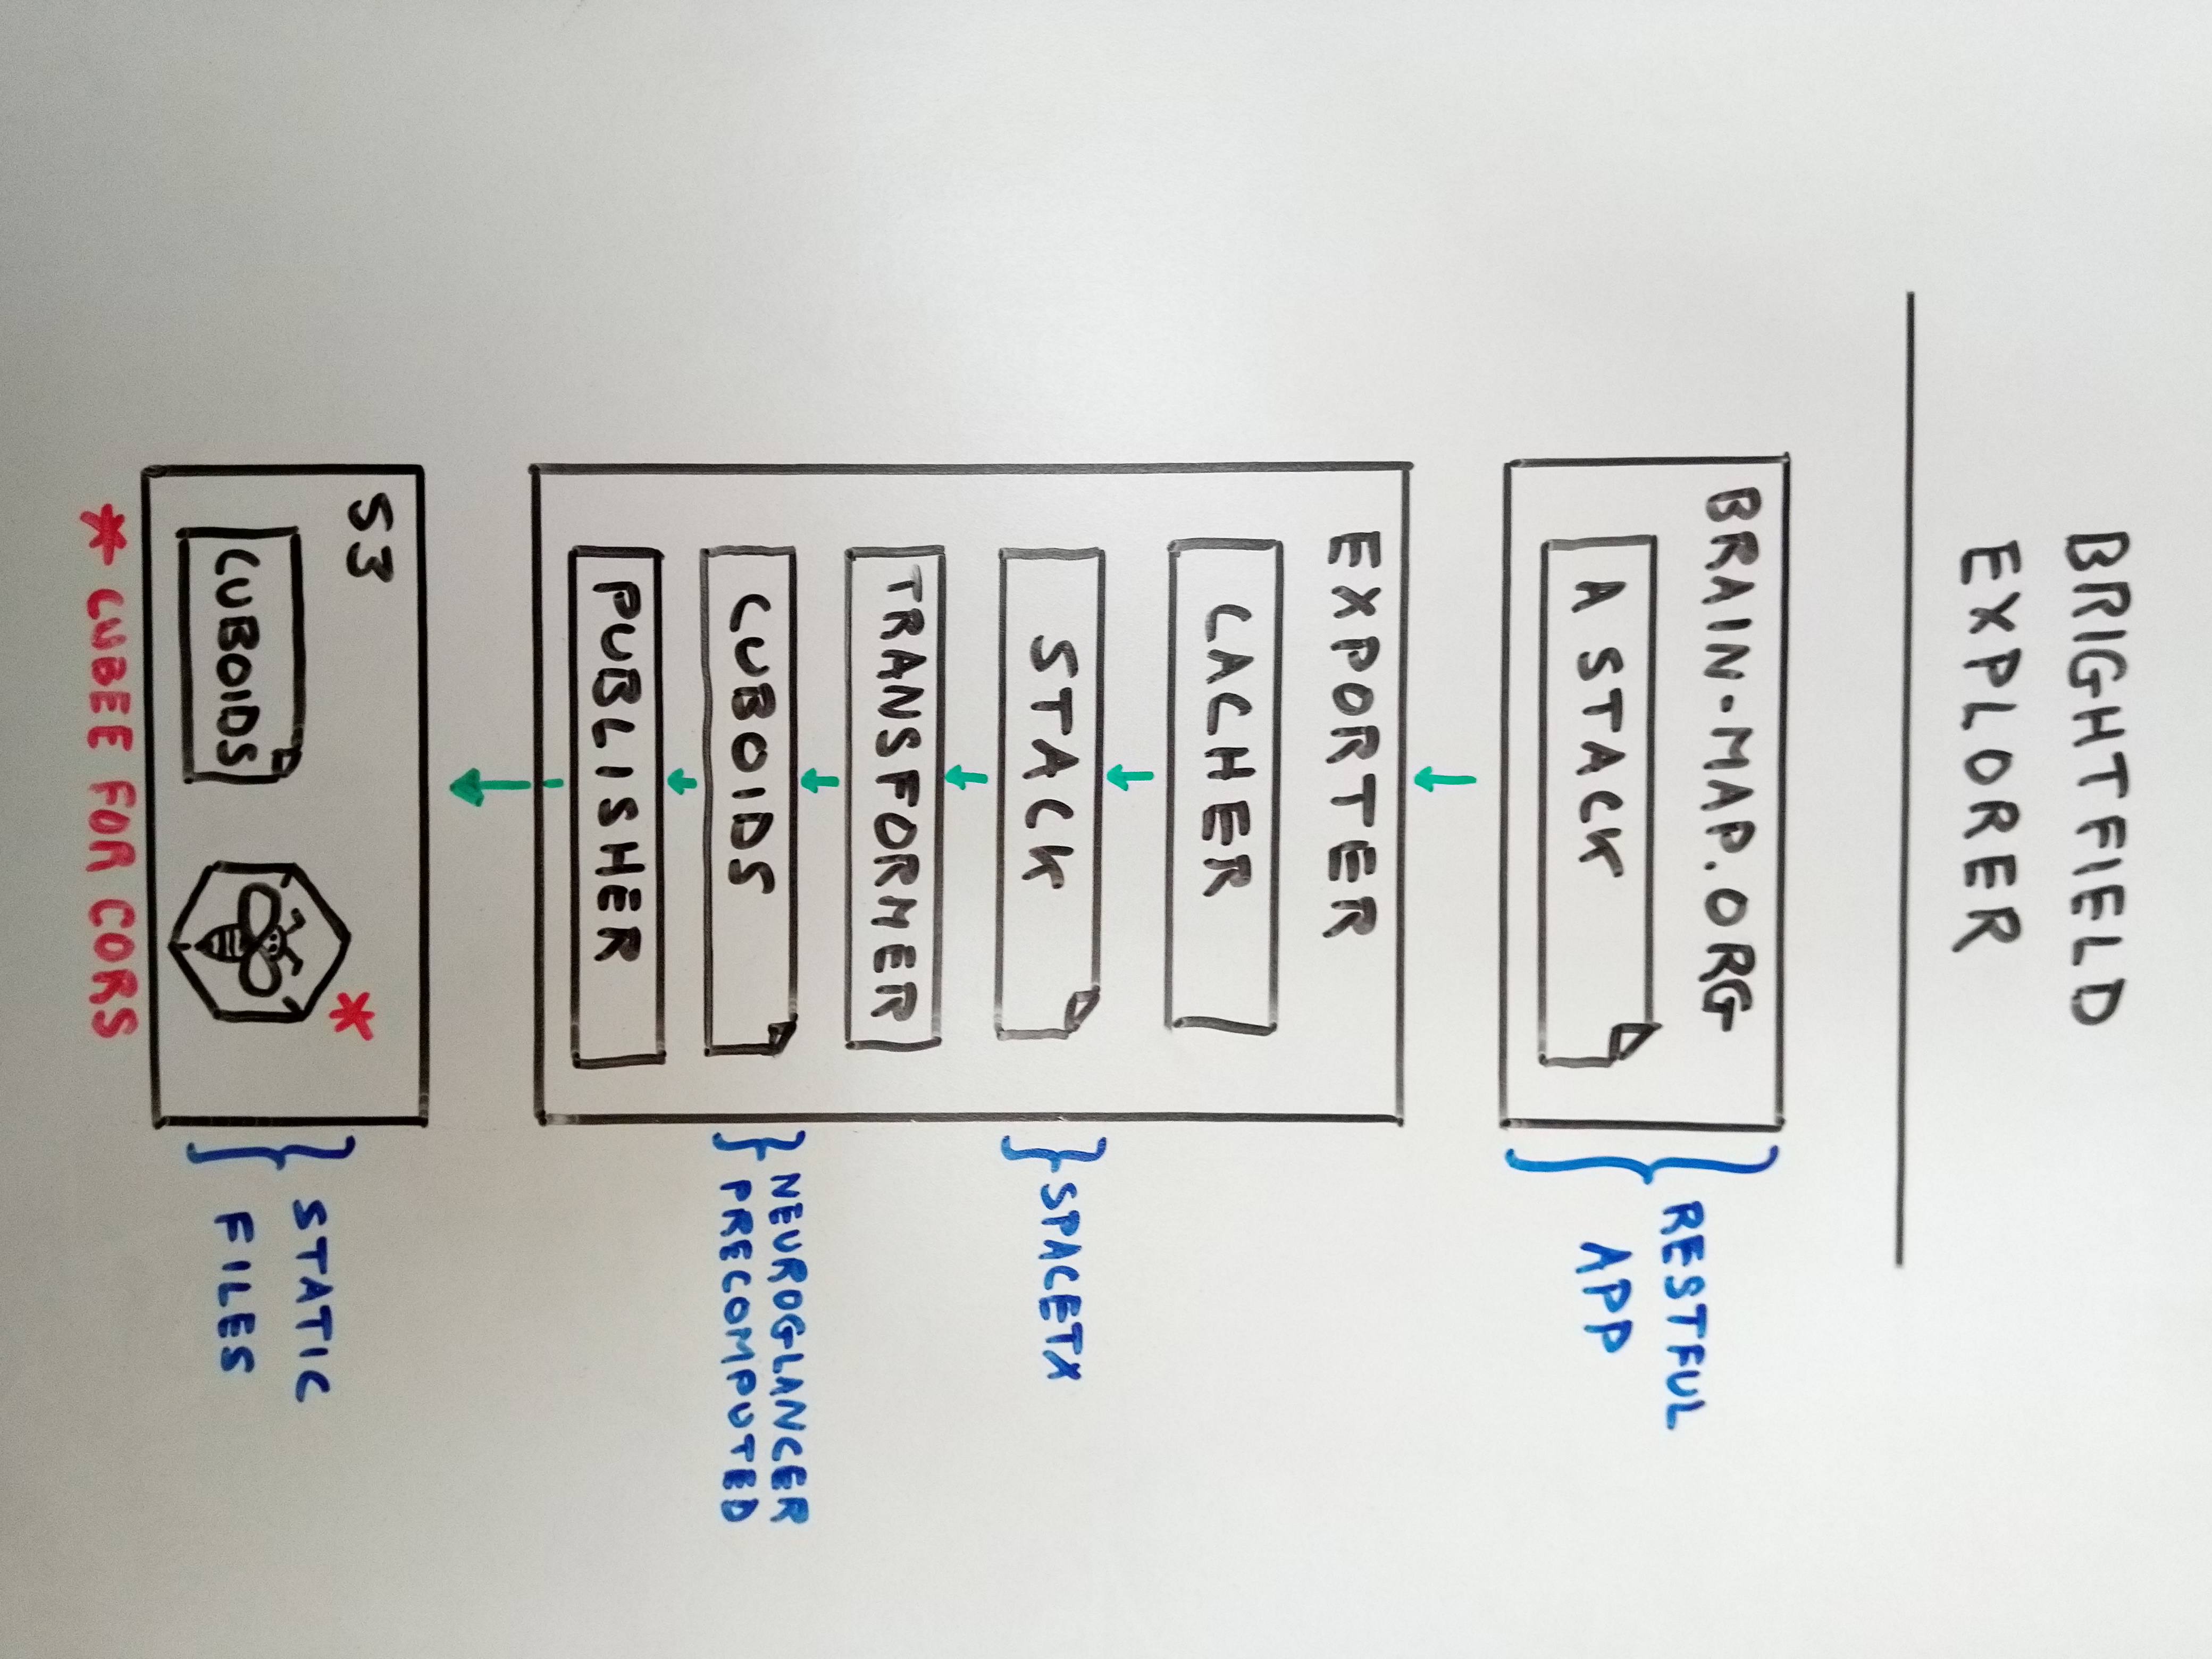 BRIGHTFIELD
EXPLORER
BRAIN-MAP.ORG
A STACK
RESTFUL
APP
EXPORTER
CACHER
STACK
SPACETX
TRANSFORMER
CUBOIDS
NEUROGLANCER
PRECOMPUTED
PUBLISHER
S3
CUBOIDS
*
STATIC
FILES
* CUBEE FOR CORS